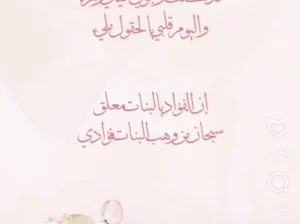 واليوم قلبي بالحقول مليء
إن الفؤاد بالبنات معلق
سبحان من وهب البنات فؤادي